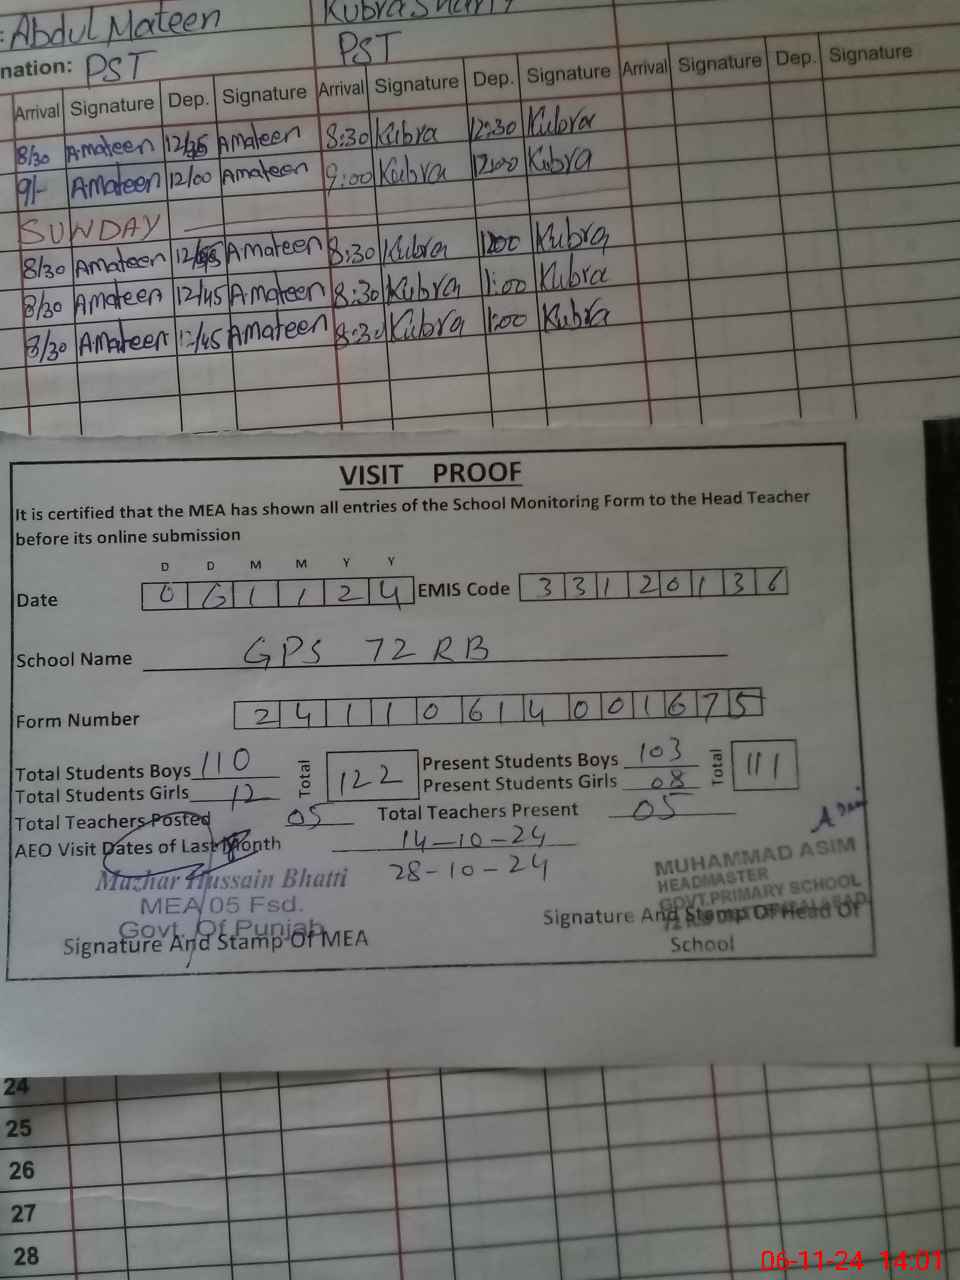 : Abdul Mateen Kubra Sharif
nation: PST PST
Arrival Signature Dep. Signature Arrival Signature Dep. Signature Arrival Signature Dep. Signature
8/30 Amateen Amateen 8:30 Kubra 12:30 Kubra
9/- Amateen 12/00 Amateen 9:00 Kubra 12:00 Kubra
SUNDAY
8/30 Amateen Amateen 8:30 Kubra Kubra
8/30 Amateen 12/45 Amateen 8:30 Kubra 1:00 Kubra
8/30 Amateen 12/45 Amateen 8:30 Kubra 1:00 Kubra
VISIT PROOF
It is certified that the MEA has shown all entries of the School Monitoring Form to the Head Teacher
before its online submission
D D M M Y Y
Date 0 6 1 1 2 4 EMIS Code 3 3 1 2 0 1 3 6
School Name GPS 72 RB
Form Number 2 4 1 1 0 6 1 4 0 0 1 6 7 5
Total Students Boys 110 Total 122 Present Students Boys 103 Total 111
Total Students Girls 12 Present Students Girls 08
Total Teachers Posted 05 Total Teachers Present 05
AEO Visit Dates of Last Month 14-10-24
28-10-24
Mazhar Hussain Bhatti
MEA 05 Fsd.
Govt. Of Punjab
Signature And Stamp Of MEA
MUHAMMAD ASIM
HEADMASTER
GOVT.PRIMARY SCHOOL
Signature And Stamp Of Head Of
School
24
25
26
27
28
06-11-24 14:01